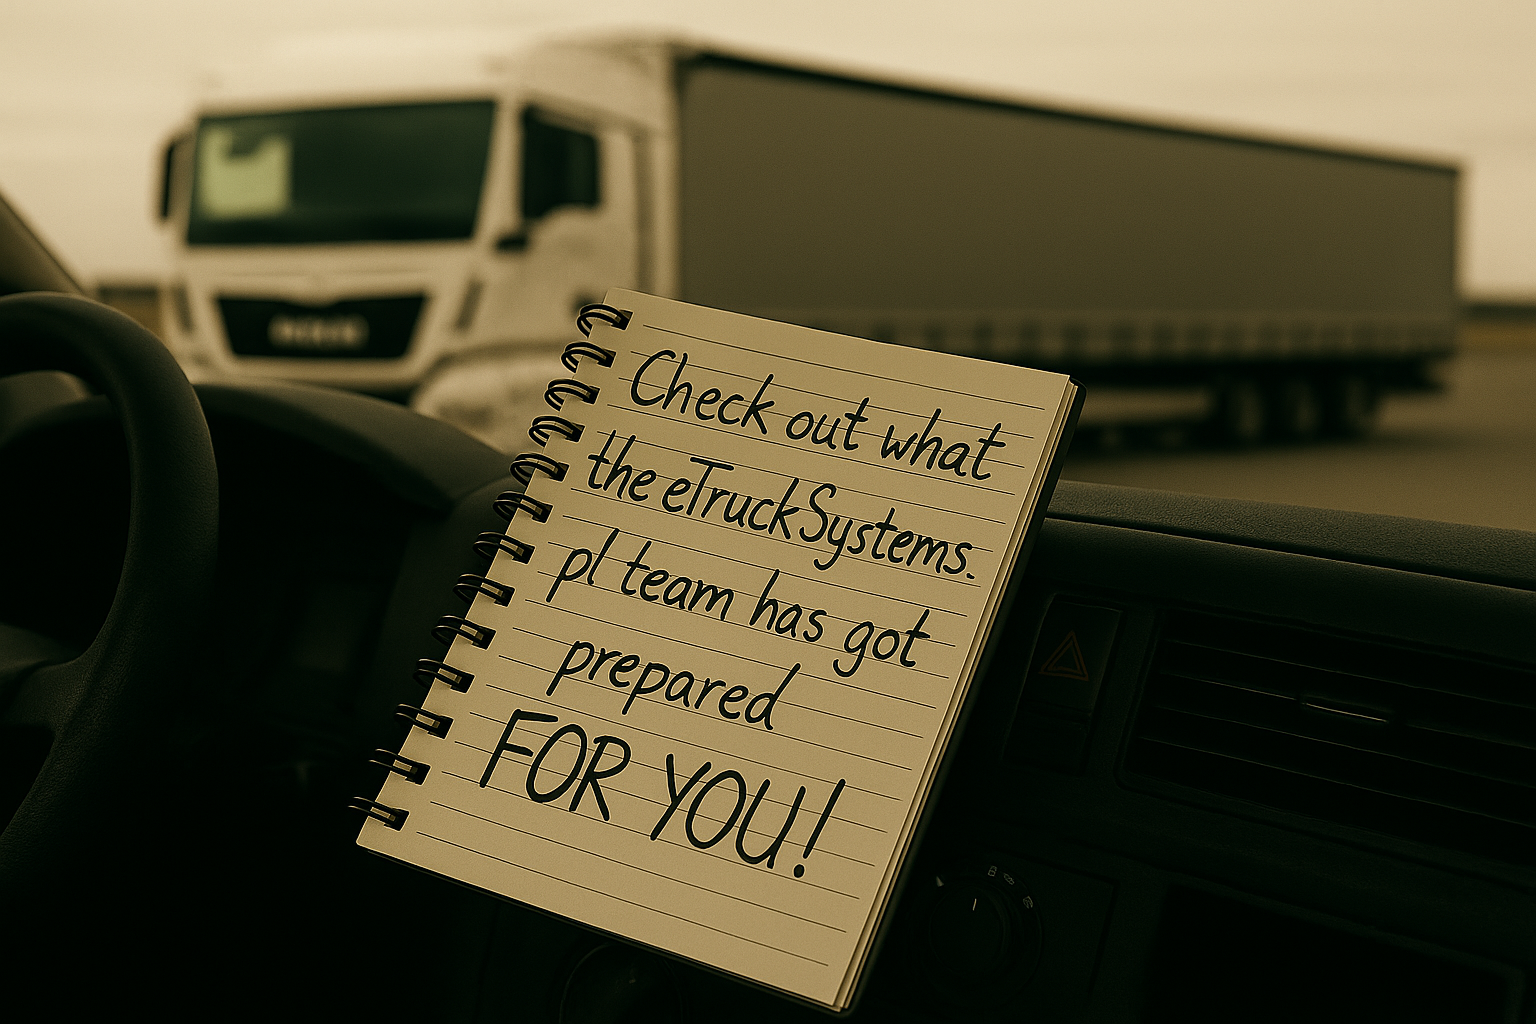 Check out what
the eTruckSystems.
pl team has got
prepared
FOR YOU!